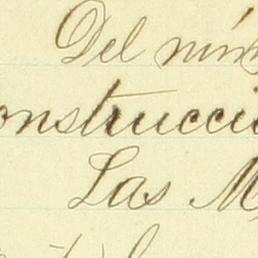 Del núm
onstrucció
Las M